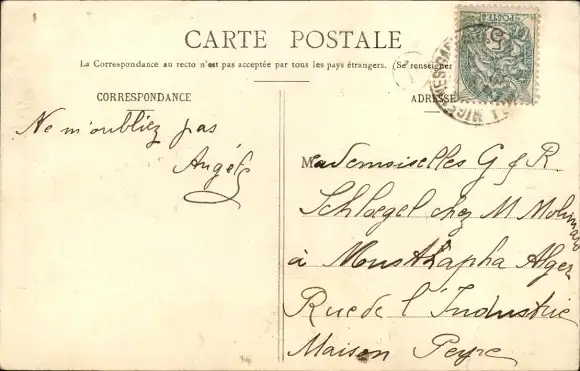 CARTE POSTALE
La Correspondance au recto n'est pas acceptée par tous les pays étrangers. (Se renseigner
CORRESPONDANCE
ADRESSE
Ne m'oubliez pas
Angèle
Mademoiselles G & R
Schlogel chez M Molinard
à Mustapha Alger
Rue de l'Industrie
Maison Peyre